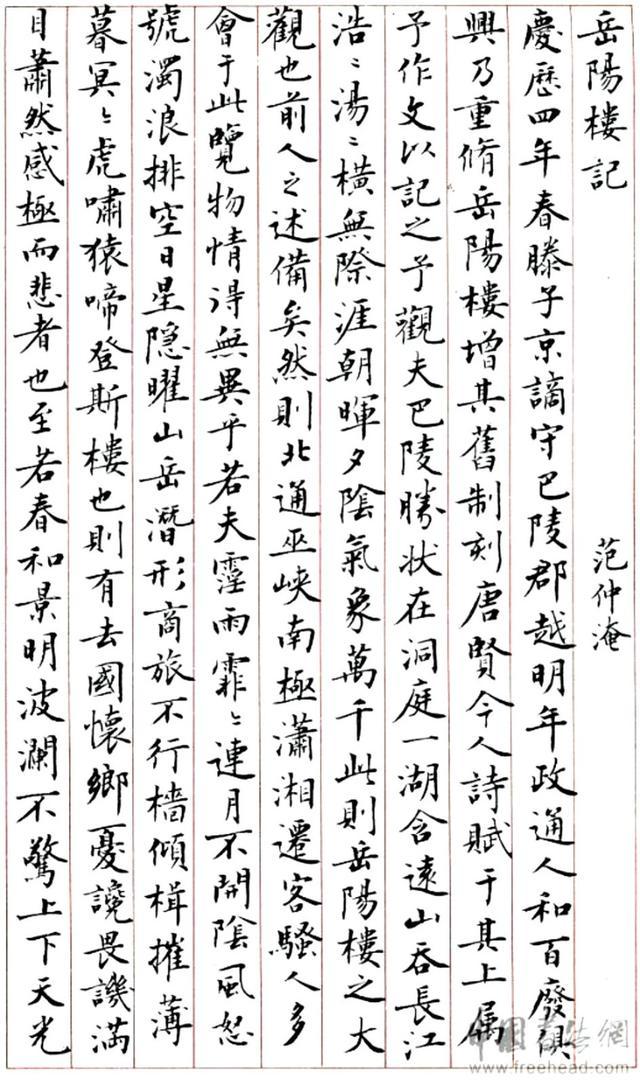 岳陽樓記
范仲淹
慶歷四年春滕子京謫守巴陵郡越明年政通人和百廢俱
興乃重脩岳陽樓增其舊制刻唐賢今人詩賦于其上屬
予作文以記之予觀夫巴陵勝狀在洞庭一湖含遠山吞長江
浩〻湯〻橫無際涯朝暉夕陰氣象萬千此則岳陽樓之大
觀也前人之述備矣然則北通巫峽南極瀟湘遷客騷人多
會于此覽物情得無異乎若夫霪雨霏〻連月不開陰風怒
號濁浪排空日星隱曜山岳潛形商旅不行檣傾楫摧薄
暮冥〻虎嘯猿啼登斯樓也則有去國懷鄉憂讒畏譏滿
目蕭然感極而悲者也至若春和景明波瀾不驚上下天光
中国书法網
www.freehead.com